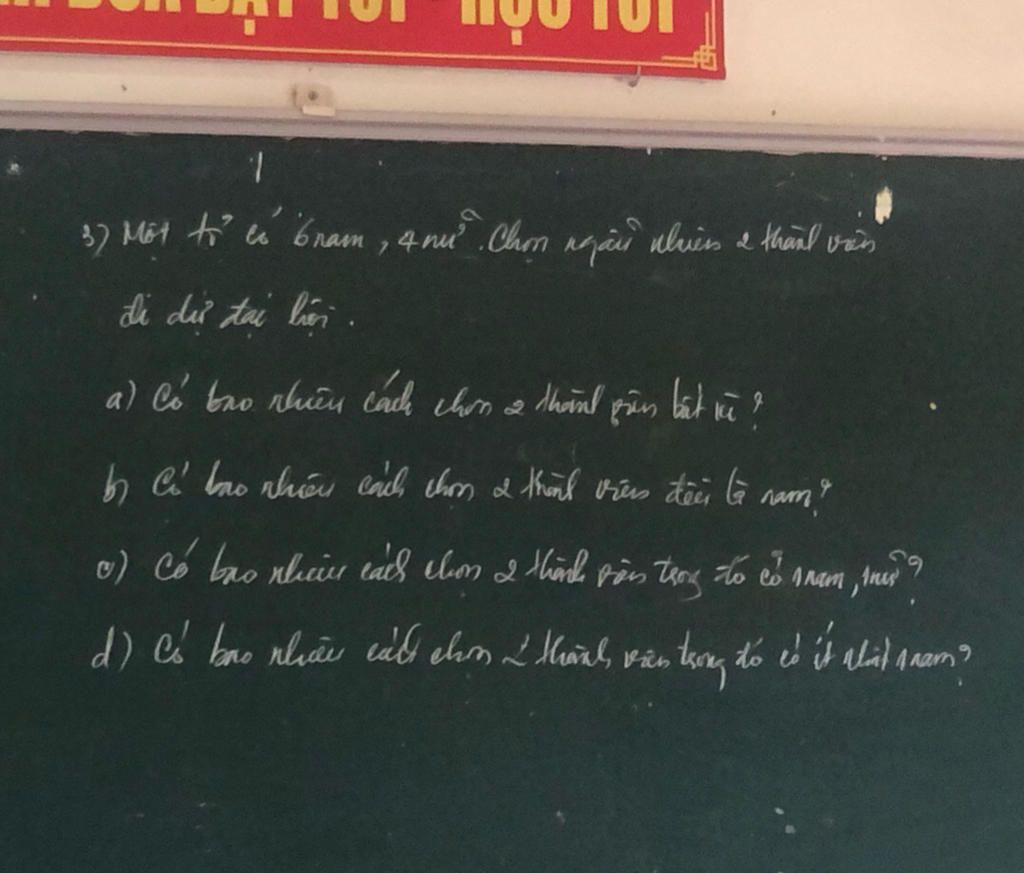 ĐUA DẠY TỐT - HỌC TỐT
3) Một tổ có 6 nam, 4 nữ. Chọn ngẫu nhiên 2 thành viên
đi dự đại hội.
a) Có bao nhiêu cách chọn 2 thành viên bất kì?
b) Có bao nhiêu cách chọn 2 thành viên đều là nam?
c) Có bao nhiêu cách chọn 2 thành viên trong đó có 1 nam, 1 nữ?
d) Có bao nhiêu cách chọn 2 thành viên trong đó có ít nhất 1 nam?